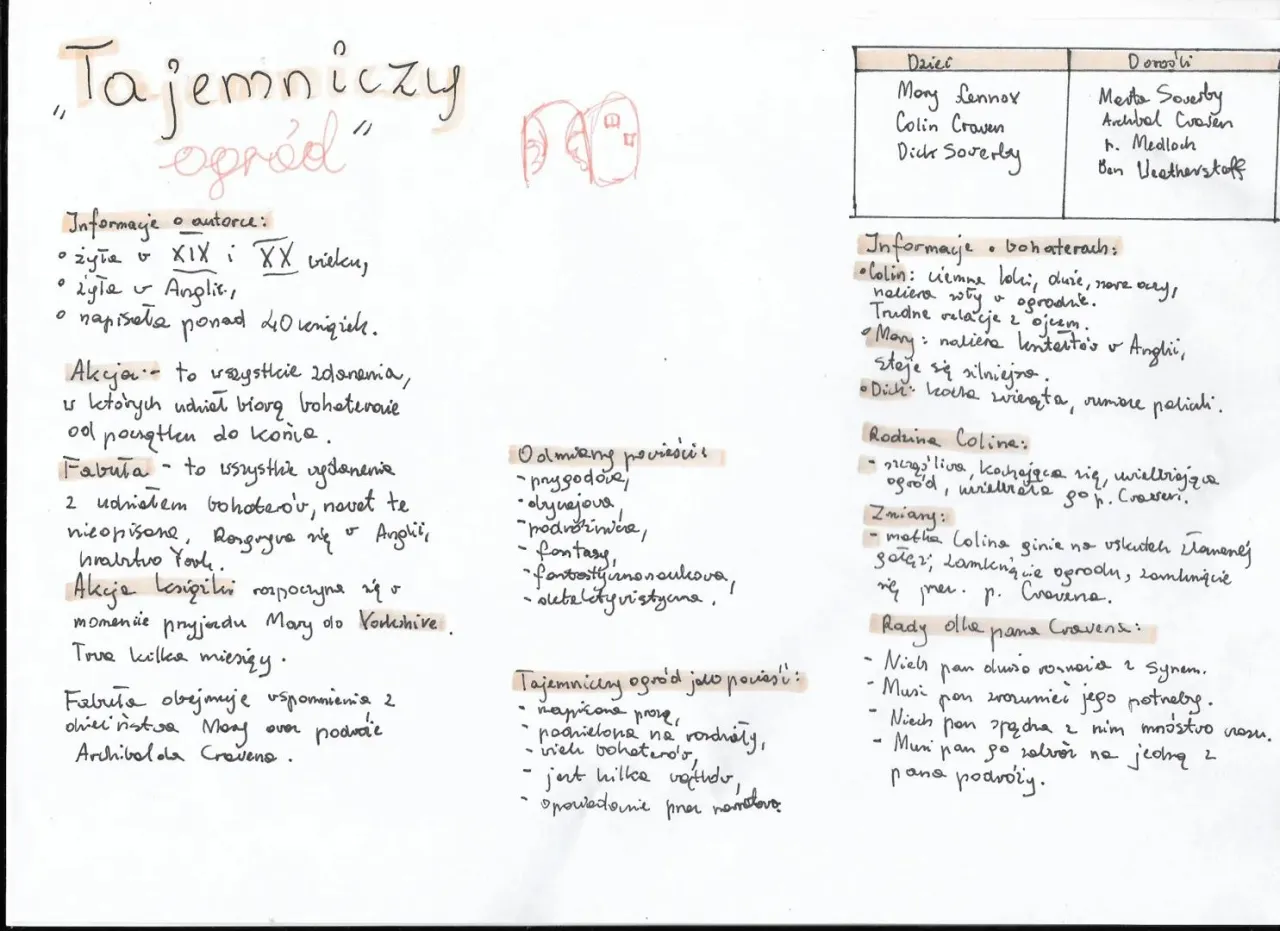 „Tajemniczy
ogród”
Informacje o autorce:
• żyła w XIX i XX wieku,
• żyła w Anglii,
• napisała ponad 40 książek.
Akcja - to wszystkie zdarzenia,
w których udział biorą bohaterowie
od początku do końca.
Fabuła - to wszystkie wydarzenia
z udziałem bohaterów, nawet te
nieopisane. Rozgrywa się w Anglii,
hrabstwo York.
Akcja książki rozpoczyna się w
momencie przyjazdu Mary do Yorkshire.
Trwa kilka miesięcy.
Fabuła obejmuje wspomnienia z
dzieciństwa Mary oraz podróże
Archibalda Cravena.
Odmiany powieści:
- przygodowa,
- obyczajowa,
- podróżnicza,
- fantasy,
- fantastycznonaukowa,
- detektywistyczna.
Tajemniczy ogród jako powieść:
- napisana prozą,
- podzielona na rozdziały,
- wielu bohaterów,
- jest kilka wątków,
- opowiadanie przez narratora
Dzieci Dorośli
Mary Lennox Marta Soverby
Colin Craven Archibal Craven
Dick Soverby p. Medloch
Ben Weatherstaff
Informacje o bohaterach:
• Colin: ciemne loki, duże, szare oczy,
nabiera siły w ogrodzie.
Trudne relacje z ojcem.
• Mary: nabiera kształtów w Anglii,
staje się silniejsza.
• Dick: kocha zwierzęta, rumiane policzki.
Rodzina Colina:
- szczęśliwa, kochająca się, uwielbiająca
ogród, uwielbiała go p. Craven.
Zmiany:
- matka Colina ginie na wskutek złamanej
gałęzi, zamknięcie ogrodu, zamknięcie
się przez p. Cravena.
Rady dla pana Cravena:
- Niech pan dużo rozmawia z synem.
- Musi pan zrozumieć jego potrzeby.
- Niech pan spędza z nim mnóstwo czasu.
- Musi pan go zabrać na jedną z
pana podróży.